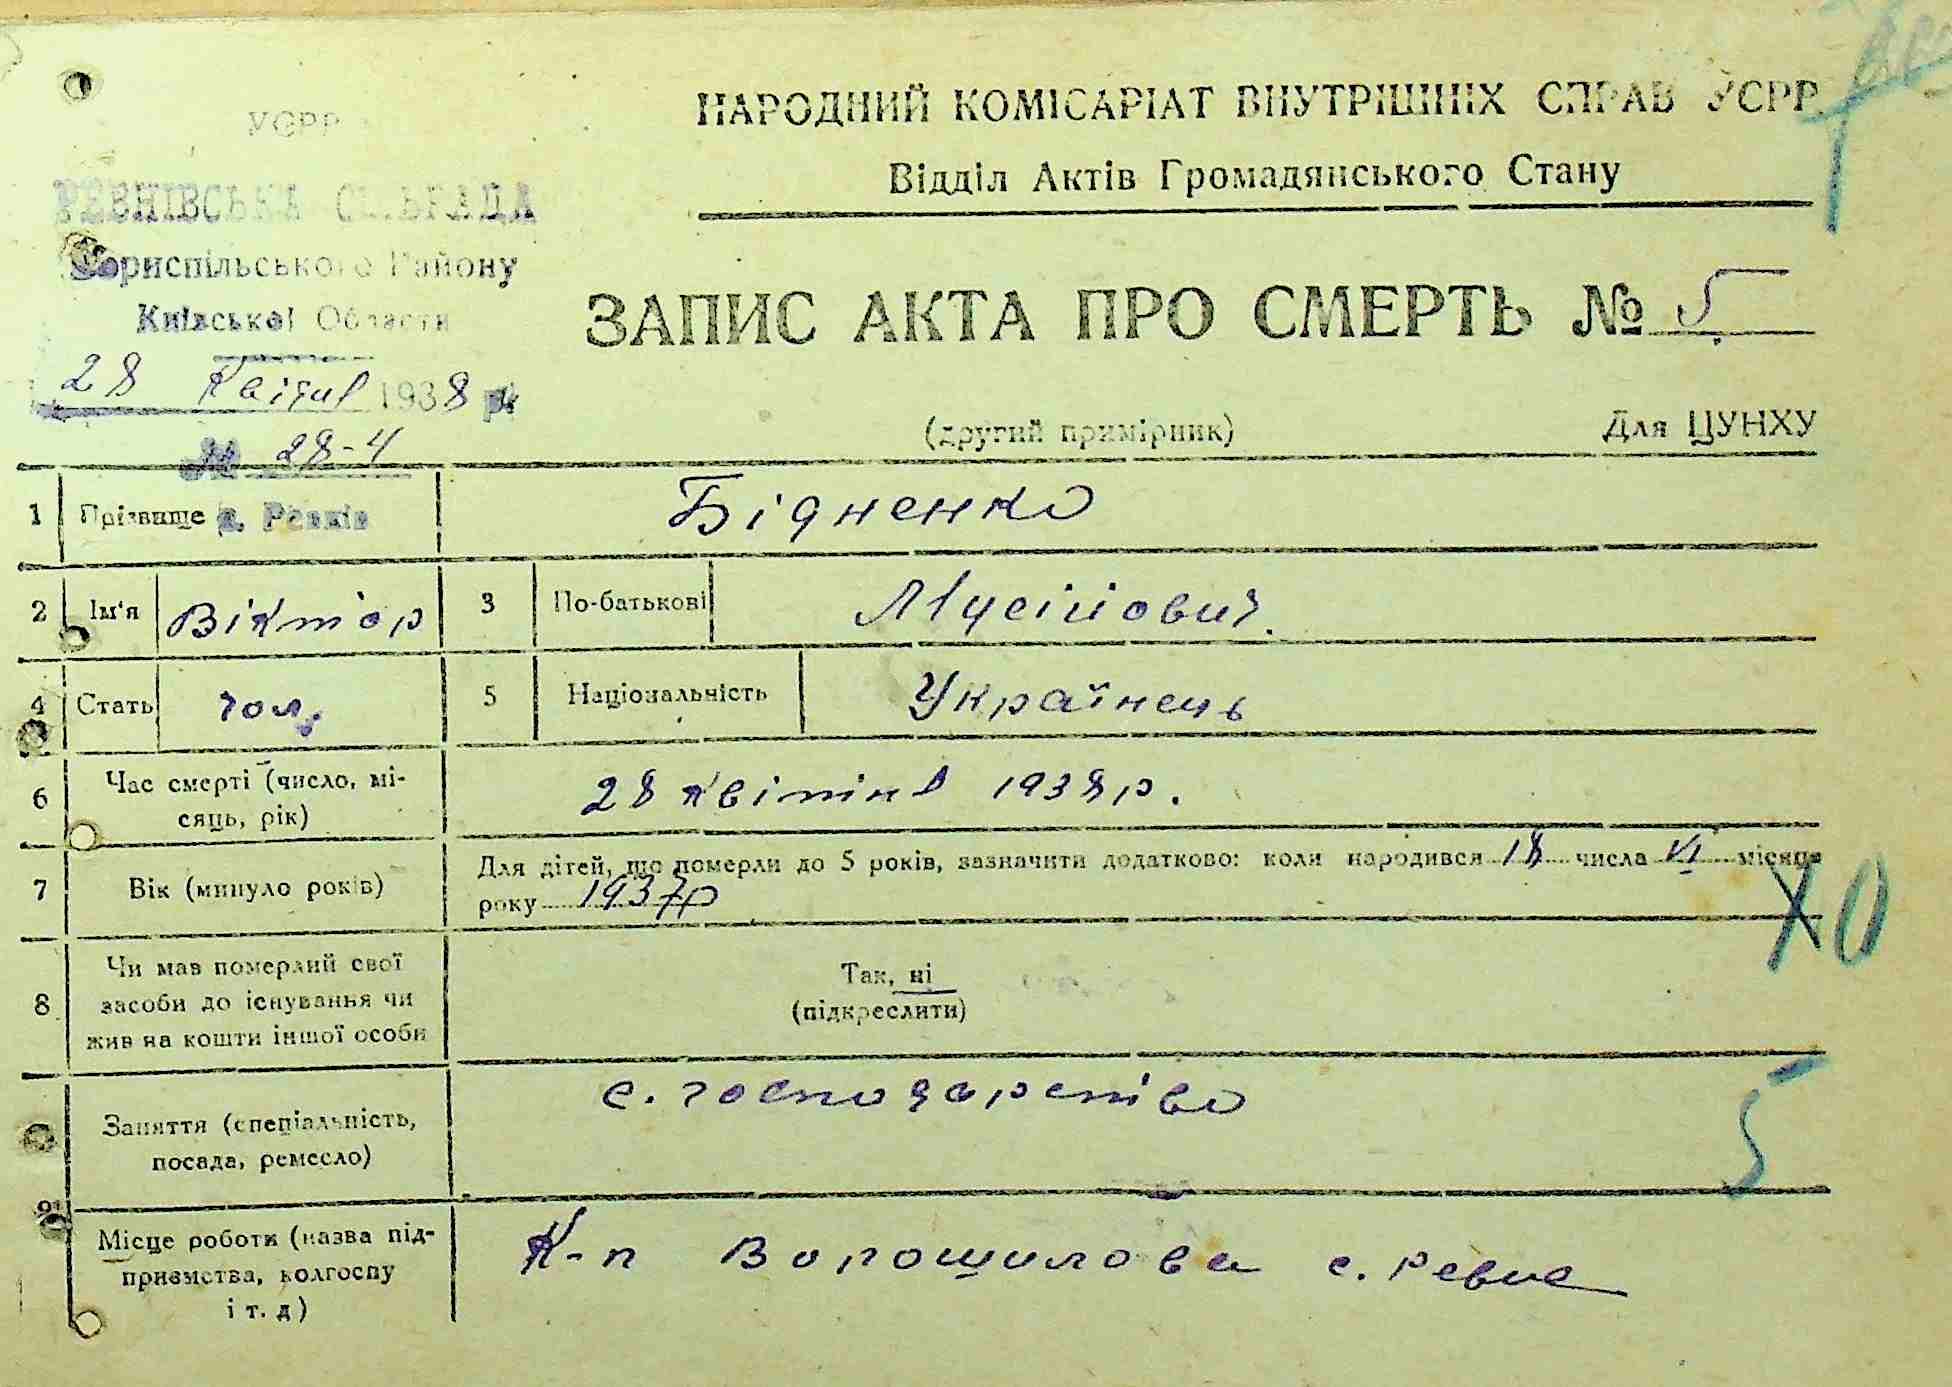 УСРР
РЕВНІВСЬКА СІЛЬРАДА
Бориспільського Району
Київської Области
28 Квітня 1938 р.
№ 28-4
с. Ревнів
НАРОДНИЙ КОМІСАРІАТ ВНУТРІШНІХ СПРАВ УСРР
Відділ Актів Громадянського Стану
ЗАПИС АКТА ПРО СМЕРТЬ № 5
(другий примірник) Для ЦУНХУ
1 Прізвище Бідненко
2 Ім'я Віктор 3 По-батькові Мусійович.
4 Стать чол. 5 Національність Українець
6 Час смерті (число, мі-
сяць, рік) 28 квітня 1938 р.
7 Вік (минуло років) Для дітей, що померли до 5 років, зазначити додатково: коли народився 18 числа VI місяця
року 1937р
Х0
8 Чи мав померлий свої
засоби до існування чи
жив на кошти іншої особи
Так, ні
(підкреслити)
Заняття (спеціальність,
посада, ремесло) с. господарство
5
9 Місце роботи (назва під-
приємства, колгоспу
і т. д) К-п Ворошилова с. Ревне